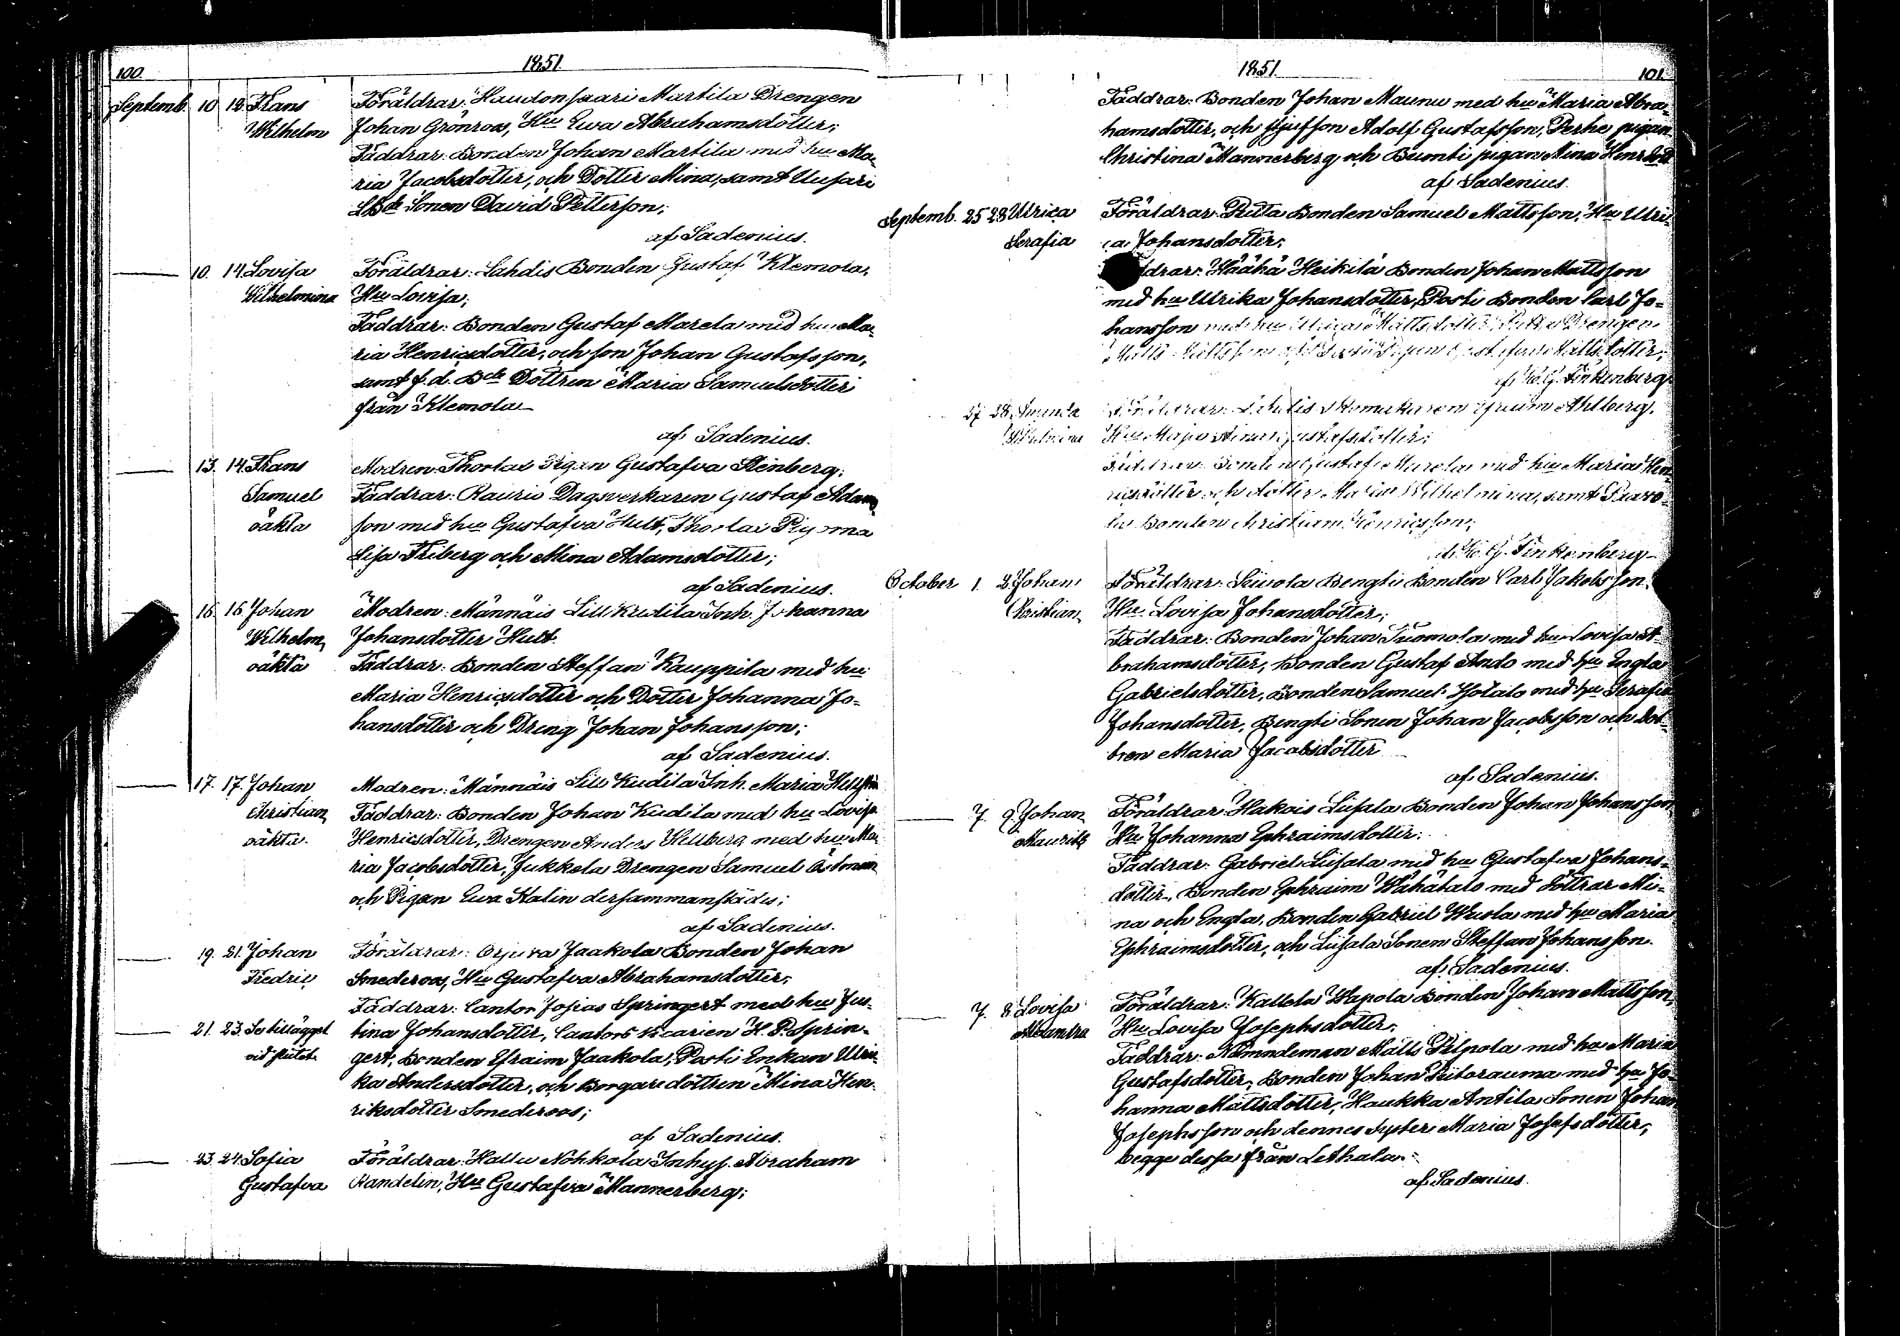 100.
1851.
Septemb. 10 12 Frans Föräldrar: Haudonsaari Martila Drengen
Wilhelm Johan Grönroos, Hu Ewa Abrahamsdotter;
Faddrar: Bonden Johan Martila med hu Ma-
ria Jacobsdotter, och Dotter Mina, samt
Sonen David Petterson;
af Sadenius.
10. 14. Lovisa Föräldrar: Lahdis Bonden Gustaf Klemola,
Wilhelmina Hu Lovisa;
Faddrar: Bonden Gustaf Marela med hu Ma-
ria Henricsdotter, och son Johan Gustafsson,
samt f.d. Bde Dottren Maria Samuelsdotter
från Klemola
af Sadenius.
13. 14. Frans Modren: Pigan Gustafva Stenberg;
Samuel Faddrar: Rauvio Dagsverkaren Gustaf Adam-
oäkta son med hu Gustafva Hult,
Lisa Friberg och Mina Adamsdotter;
af Sadenius.
15. 16 Johan Modren: Männäis Lill Kudila Inh. Johanna
Wilhelm, Johansdotter Hult.
oäkta Faddrar: Bonden Steffan Kauppila med hu
Maria Henricsdotter och Dotter Johanna Jo-
hansdotter och Dreng Johan Johansson;
af Sadenius.
17. 17. Johan Modren: Männäis Lill Kudila Inh. Maria
Christian, Faddrar: Bonden Johan Kudila med hu Lovisa
oäkta. Henricsdotter, Drengen Anders Hellberg med hu Ma-
ria Jacobsdotter, Jukkala Drengen Samuel Östman
och Pigan Ewa Kalin dersammanstädes;
af Sadenius.
19. 21. Johan Föräldrar: Jaakola Bonden Johan
Fredric Smederoos, Hu Gustafva Abrahamsdotter,
Faddrar: Cantor Josias Springert med hu Jus-
21. 23. tina Johansdotter, Cantors Vicarien H. P. Sprin-
vid slutet. gert, Bonden Efraim Jaakola, Posti Enkan Ulri-
ka Andersdotter, och Borgare dottren Mina Hen-
riksdotter Smederoos;
af Sadenius.
23. 24. Sofia Föräldrar: Hallu Nohkola Inhys. Abraham
Gustafva Randelin, Hu Gustafva Mannerberg;
1851.
101.
Faddrar: Bonden Johan Maunu med hu Maria Abra-
hamsdotter, och Adolf Gustafsson, Perhe pigan
Christina Mannerberg och pigan Mina
af Sadenius.
Septemb. 25 28 Ulrica Föräldrar: Bonden Samuel Mattsson, Hu Ulri-
Serafia ca Johansdotter;
ddrar: Häähä Heikilä Bonden Johan Mattsson
med hu Ulrika Johansdotter, Posti Bonden Carl Jo-
hansson med hu Ulrica Mattsdotter, Drengen
Matts Mattsson och Mattsdotter;
af K. G. Finkenberg.
27 28 Amanda Föräldrar: Lahdis Ahlberg.
Wilhelmina Gustafsdotter;
Faddrar: Bonden Gustaf Marela med hu Maria Hen-
ricsdotter och dotter Maria Wilhelmina, samt
Bonden Christian Henricsson;
af K. G. Finkenberg
October 1. 2 Johan Föräldrar: Bengti Bonden Carl Jakobsson,
Kristian, Hu Lovisa Johansdotter;
Faddrar: Bonden Johan Tuomola med hu Lovisa A-
brahamsdotter, Bonden Gustaf Ando med hu Ingla
Gabrielsdotter, Bonden Samuel med hu Serafia
Johansdotter, Bengti Sonen Johan Jacobsson och Dot-
tren Maria Jacobsdotter
af Sadenius.
7. 9. Johan Föräldrar: Hakois Liisala Bonden Johan Johansson,
Mauritz Hu Johanna Ephraimsdotter.
Faddrar: Gabriel Liisala med hu Gustafva Johans-
dotter, Bonden Ephraim Wähätalo med Döttrar Mi-
na och Engla, Bonden Gabriel med hu Maria
Ephraimsdotter, och Liisala Sonen Steffan Johansson.
af Sadenius.
7. 8. Lovisa Föräldrar: Kallela Wapola Bonden Johan Mattsson,
Alexandra Hu Lovisa Josephsdotter,
Faddrar: Nämndeman Matts Pilpola med hu Maria
Gustafsdotter, Bonden Johan med hu Jo-
hanna Mattsdotter, Haukka Antila Sonen Johan
Josephsson och dennes syster Maria Josefsdotter,
begge dessa från Lethala.
af Sadenius.